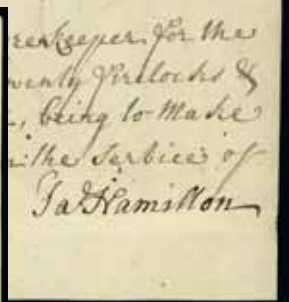 reekeeper for the
wenty firelocks &
, being to Make
n the Serbice of
Jaˢ Hamilton